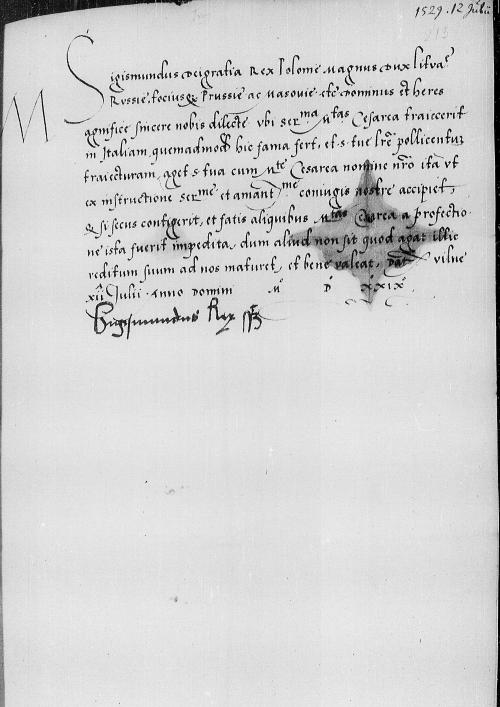 1529. 12 Julii
213
Sigismundus dei gratia Rex Polonie Magnus Dux Litva͠e
Russie, tociusq͛ Prussie ac Masovie etc̃ Dominus et heres
Magnifice sincere nobis dilecte. Ubi Ser^ma M^tas Cesarea traiecerit
in Italiam, quemadmod̃ hic fama fert, et S. tue l͠re pollicentur
traiecturam, aget S. tua cum M^te Cesarea nomine nr̃o ita ut
ex instructione Ser^me et amant^me coniugis nostre accipiet,
& si secus contigerit, et satis aliquibus M^tas Cesarea a profectio-
ne ista fuerit impedita, dum aliud non sit quod agat illic
reditum suum ad nos maturet, et bene valeat, Dat̃ Vilne
xii Julii Anno Domini M° D° XXIX°
Sigismundus Rex sst̃